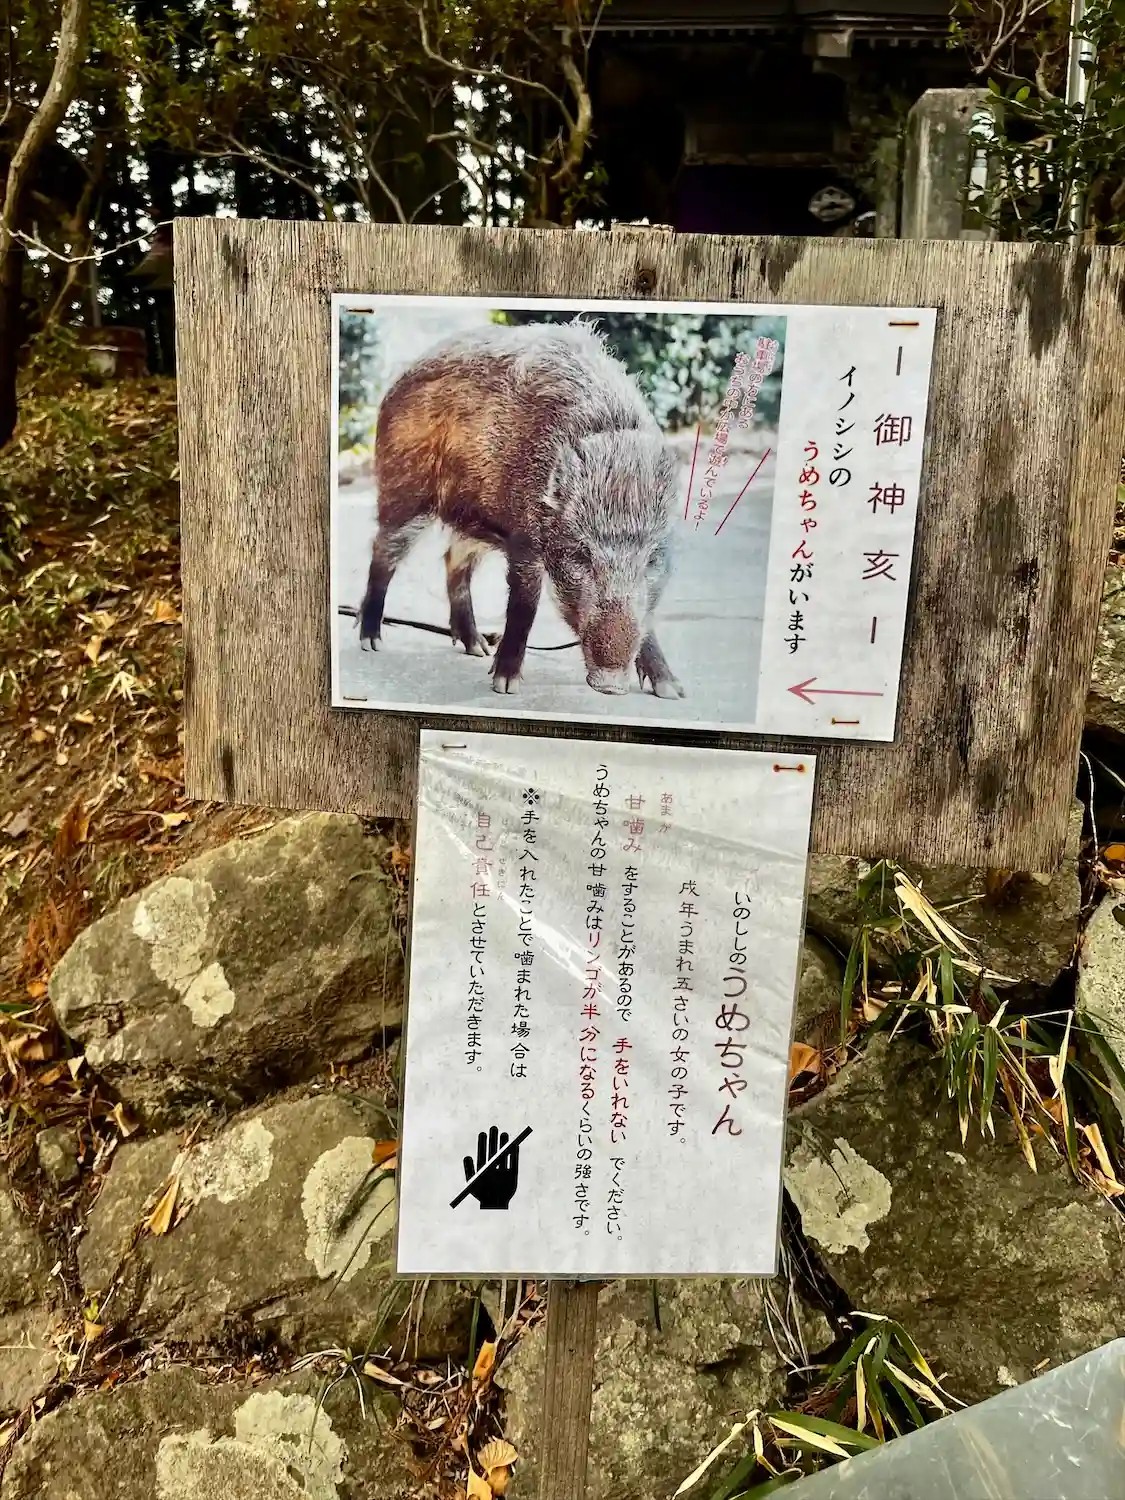 ー御神亥ー
イノシシの
うめちゃんがいます
駐車場の左にある
おうちの中か広場で遊んでいるよ!
いのししのうめちゃん
戌年うまれ五さいの女の子です。
あまが
甘噛みをすることがあるので 手をいれない でください。
うめちゃんの甘噛みはリンゴが半分になるくらいの強さです。
※手を入れたことで噛まれた場合は
せきにん
自己責任とさせていただきます。